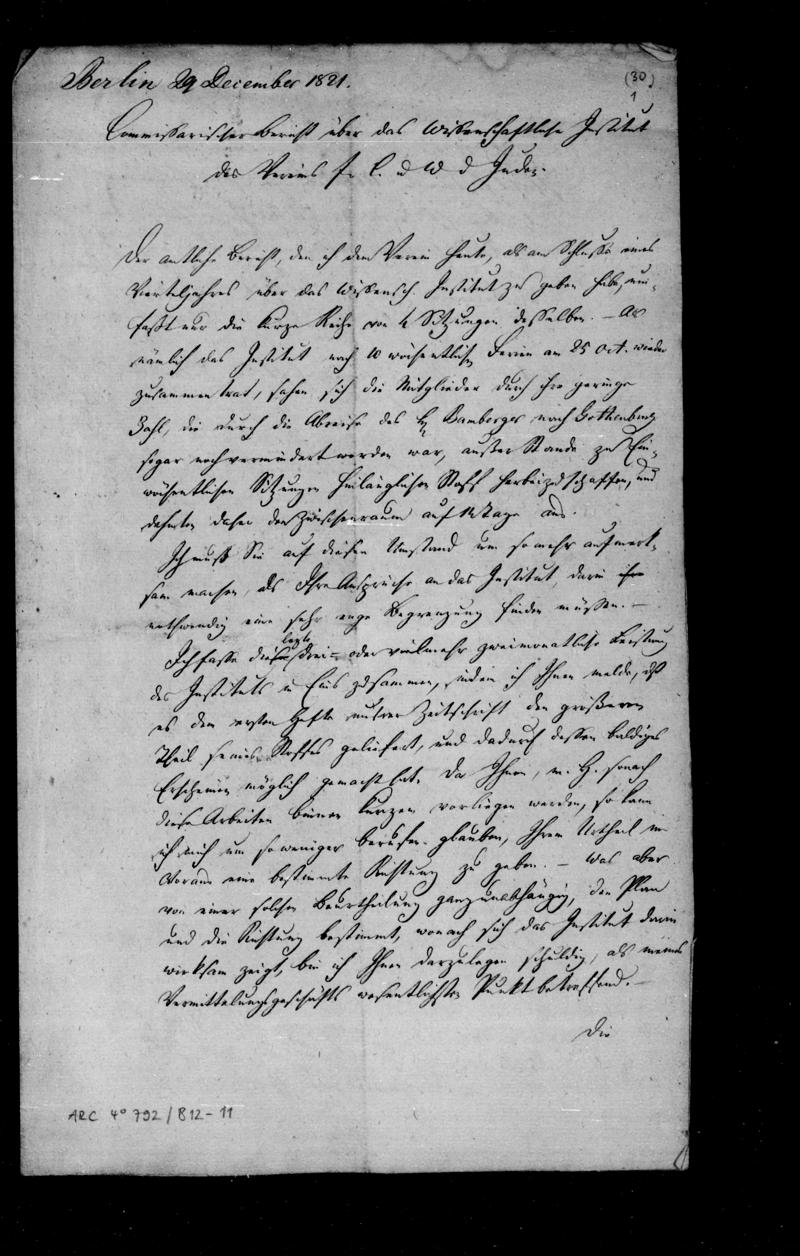 Berlin 29 December 1821.
(30)
1
Commissarischer Bericht über das Wissenschaftliche Institut
des Vereins f. C. u W d Juden.
Der amtliche Bericht, den ich dem Verein heute, als am Schlusse eines
Vierteljahres über das Wissensch. Institut zu geben habe, um-
faßt nur die kurze Reihe von 4 Sitzungen desselben. – Als
nämlich das Institut nach 10 wöchentlichen Ferien am 25 Oct. wieder
zusammentrat, sahen sich die Mitglieder durch ihre geringe
Zahl, die durch die Abreise des H. Bamberger nach Gothenburg
sogar noch vermindert worden war, außer Stande zu Ein-
wöchentlichen Sitzungen hinlänglichen Stoff herbeizuschaffen, und
dehnten daher den Zwischenraum auf 14 Tage aus.
Ich muß Sie auf diesen Umstand um so mehr aufmerk-
sam machen, als Ihre Ansprüche an das Institut, darin
nothwendig eine sehr enge Begrenzung finden müssen. –
letzte
Ich fasse diese drei- oder vielmehr zweimonatliche Leistung
des Instituts in Eins zusammen, indem ich Ihnen melde, daß
es dem ersten Hefte unsrer Zeitschrift den größeren
Theil seines Stoffes geliefert, und dadurch dessen baldiges
Erscheinen möglich gemacht hat. Da Ihnen, m. H. sonach
diese Arbeiten binnen kurzem vorliegen werden, so kann
ich mich um so weniger berufen glauben, Ihrem Urtheil im
Voraus eine bestimmte Richtung zu geben. – Was aber
von einer solchen Beurtheilung ganz unabhängig, den Plan
und die Richtung bestimmt, wonach sich das Institut darin
wirksam zeigt, bin ich Ihnen darzulegen schuldig, als meines
Vermittelungsgeschäfts wesentlichsten Punkt betreffend. –
Die
ARC 4° 792/B12-11